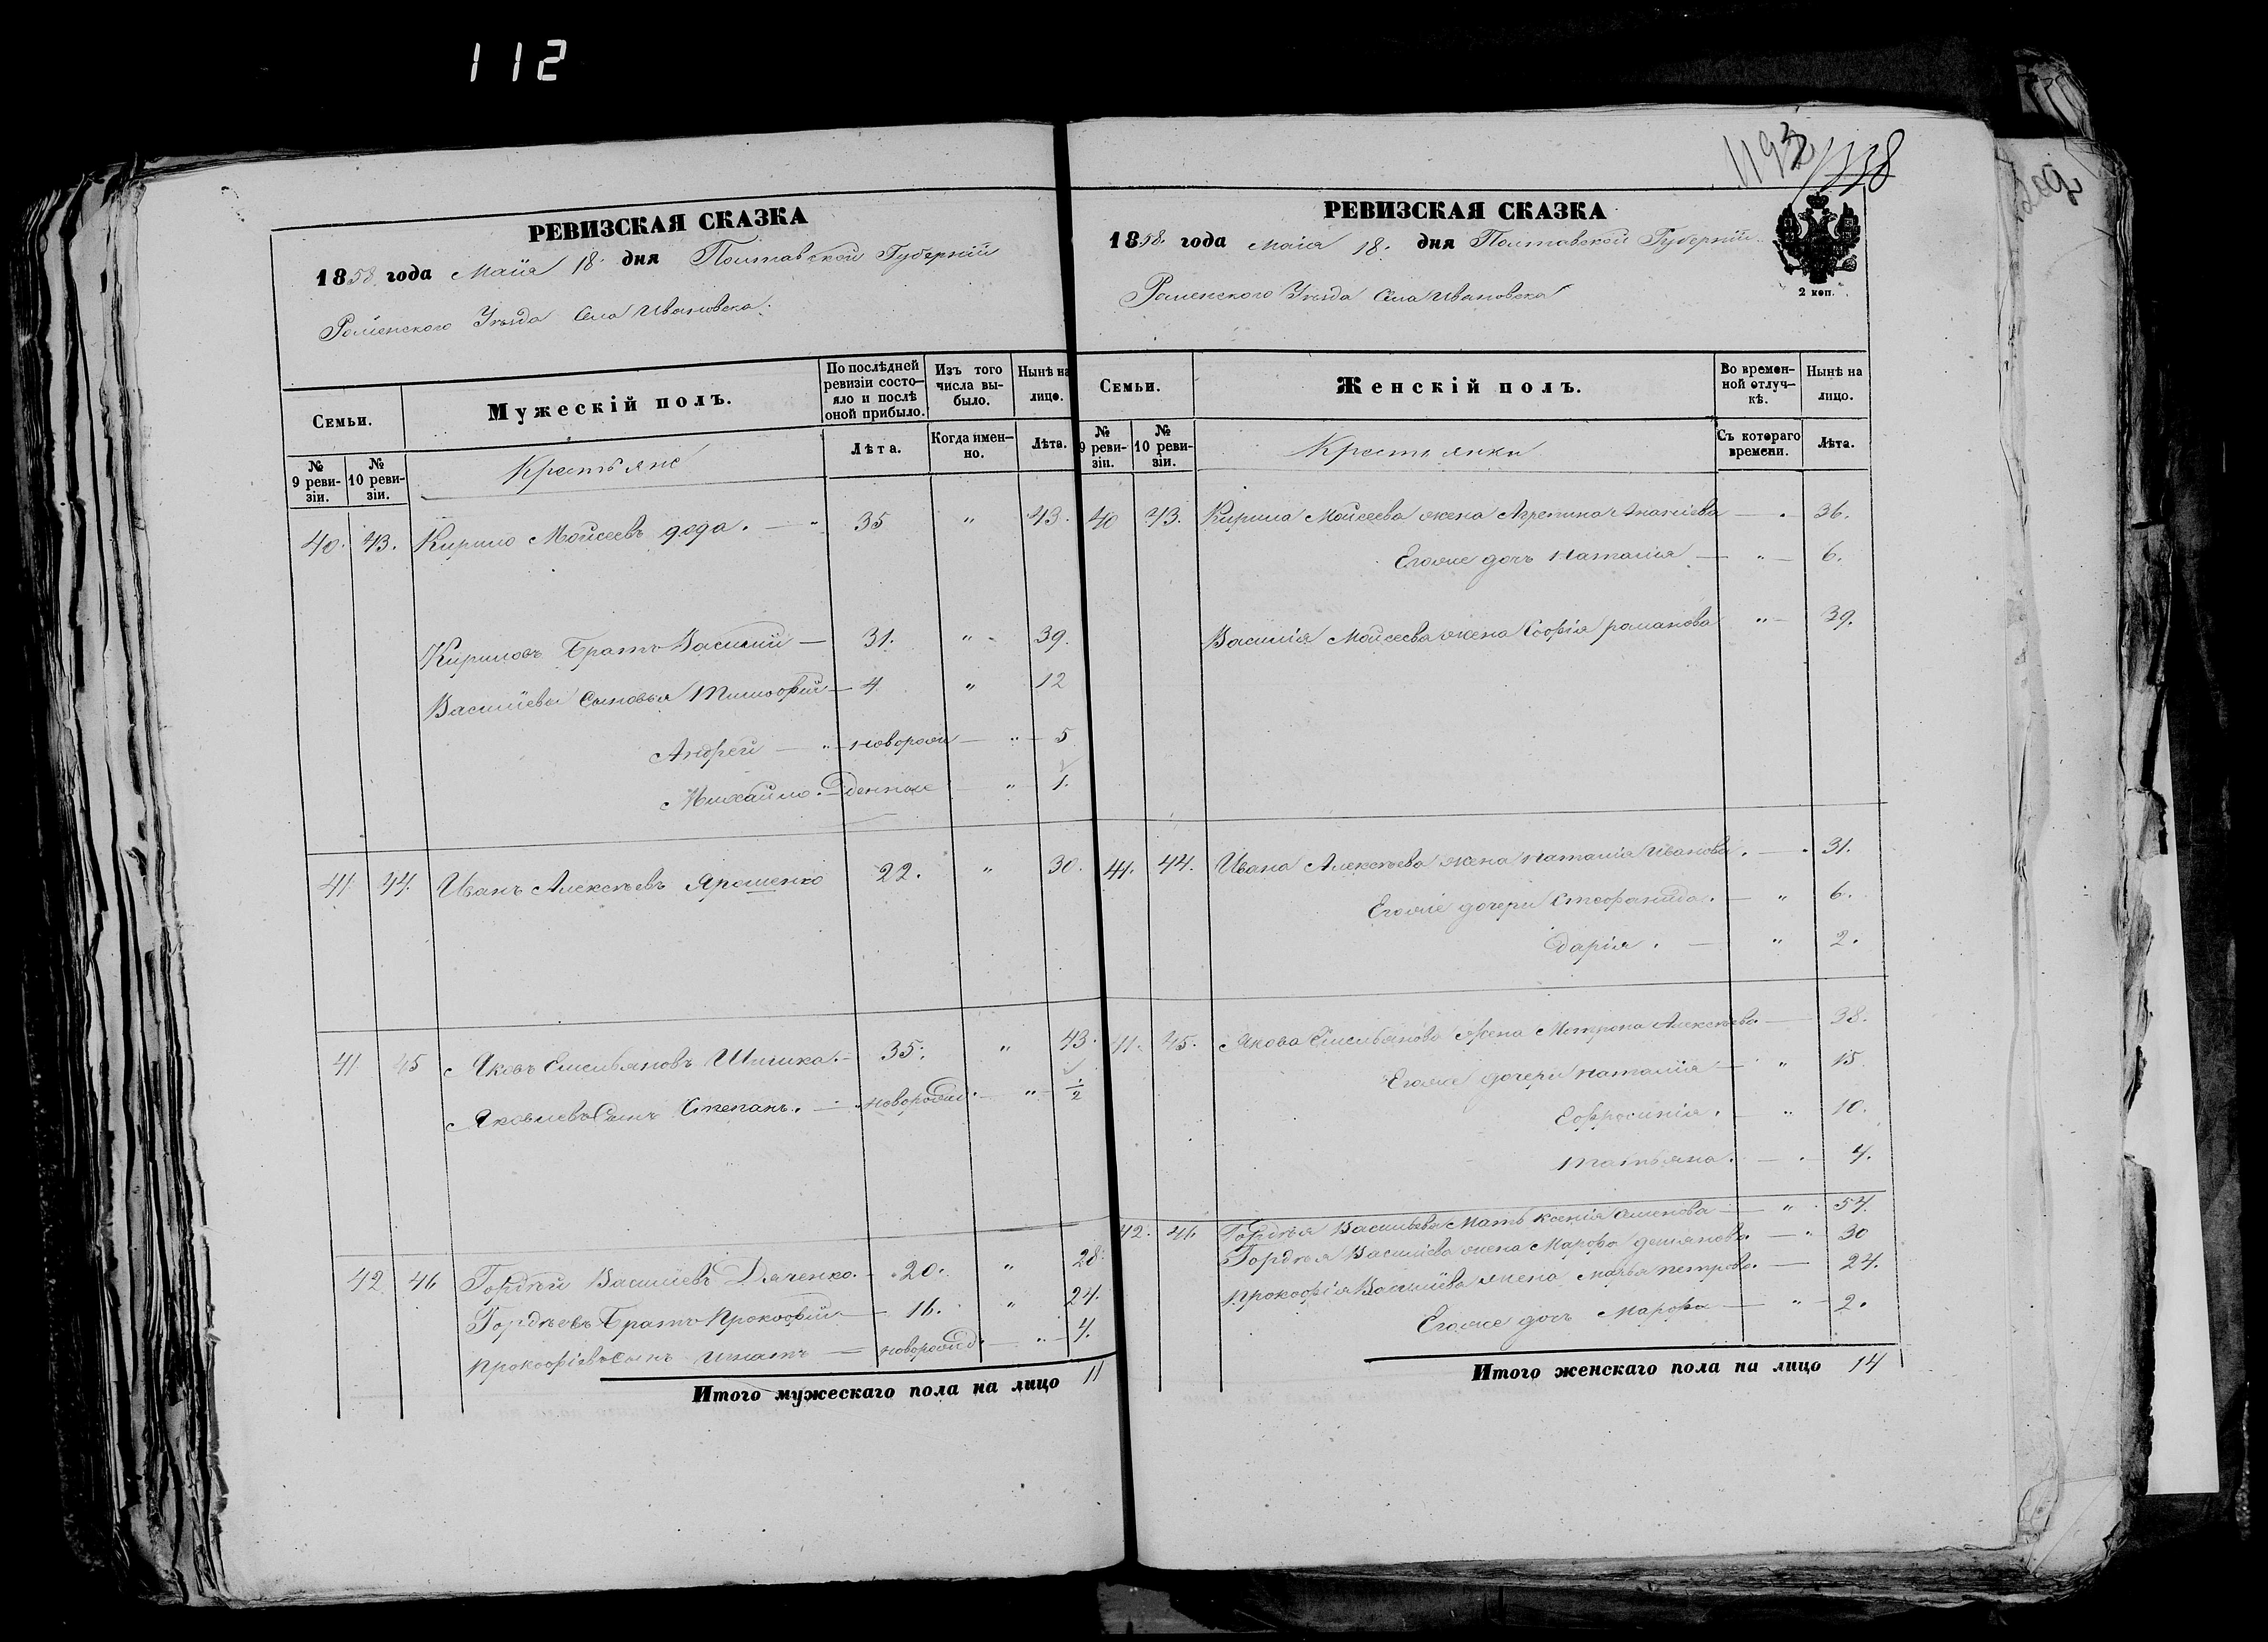 112
1193
РЕВИЗСКАЯ СКАЗКА
1858 года Маія 18 дня Полтавской Губерніи
Роменского Уѣзда Села Ивановска
Семьи.
Мужескій полъ.
По послѣдней ревизіи состо-
яло и послѣ
оной прибыло.
Изъ того
числа вы-
было.
Нынѣ на
лицо.
№
9 реви-
зіи.
№
10 реви-
зіи.
Крестьяне
Лѣта.
Когда имен-
но.
Лѣта.
40. 43. Кирило Мойсеевъ 35 " 43.
Кириловъ Братъ Василий — 31. " 39.
Василіевы Сыновья Тимофей — 4 " 12
Андрей — " новорож — " 5
Михайло. " 1.
41 44. Иванъ Алексѣевъ Ярошенко 22. " 30.
41 45 Яковъ Емельяновъ Шишка. 35. " 43.
Яковлевъ Сынъ Степанъ. — новорожд. — " ½
42 46 Гордѣй Василіевъ Дяченко. — 20. " 28.
Гордѣевъ Братъ Прокофий — 16. " 24.
Прокофіевъ Сынъ Игнатъ — новорожд. — " 4.
Итого мужескаго пола на лицо 11
РЕВИЗСКАЯ СКАЗКА
1858. года Маія 18. дня Полтавской Губерніи
2 коп.
Роменского Уѣзда Села Ивановска
Семьи.
Женскій полъ.
Во времен-
ной отлуч-
кѣ.
Нынѣ на
лицо.
№
9 реви-
зіи.
№
10 реви-
зіи.
Крестьянки
Съ котораго
времени.
Лѣта.
40 43. Кирила Мойсеева жена Агрепина Ананіева — 36.
Егоже дочь Наталія — " — 6.
Василія Мойсеева жена Софія романова " — 39.
41. 44. Ивана Алексѣева жена Наталія Иванова. — 31.
Егоже дочери Стефанида. — " 6.
Дарія. — " 2.
41. 45. Якова Емельянова жена Мотрона Алексѣева — 38.
Егоже дочери Наталія — " 15
Ефросинія. — " 10.
Татьяна. — 4.
42. 46 Гордѣя Васильева Мать Ксенія Семенова — " 54.
Гордѣя Василіева жена Марфа демянова. — " 30
Прокофія Василіева жена Марья петрова. — 24.
Егоже дочь Марфа — " 2.
Итого женскаго пола на лицо 14